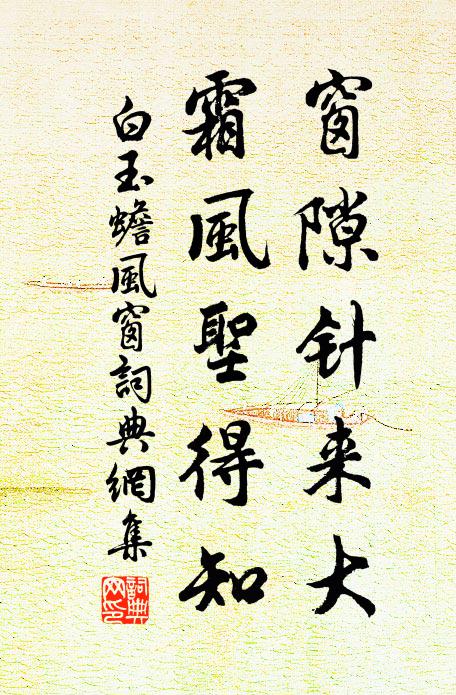 窗隙针来大
霜風聖得知
白玉蟾風窗詞典網集
詞典网印